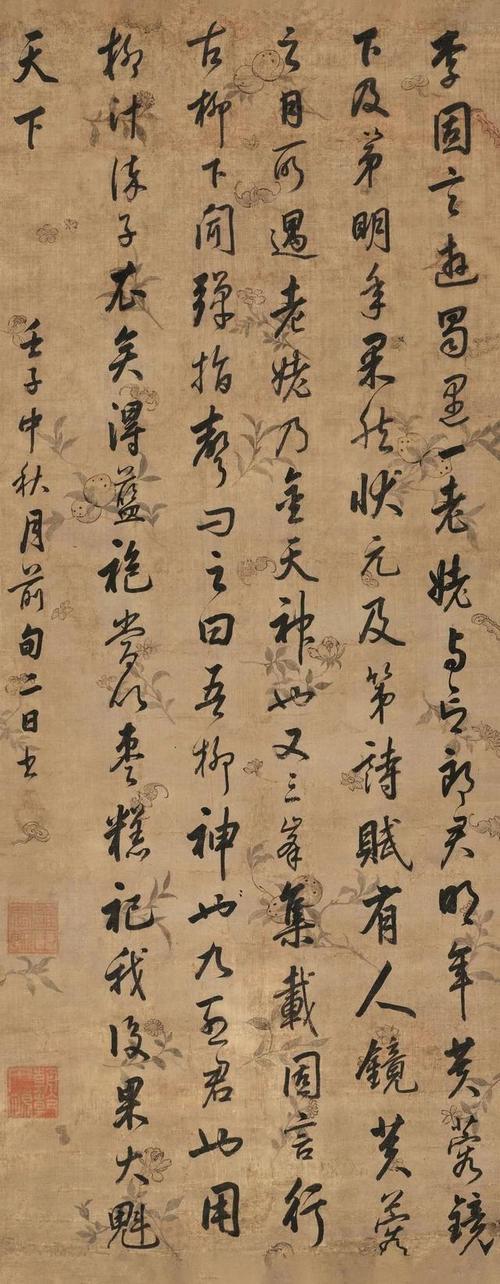 李固言遊蜀遇一老姥与之郎君明年芙蓉鏡
下及第明年果然狀元及第詩賦有人鏡芙蓉
之目所遇老姥乃金天神也又三峯集載固言行
古柳下聞彈指聲问之曰吾柳神也九烈君也用
柳汁染子衣矣得藍袍當以枣糕祀我后果大魁
天下
壬子中秋月前旬二日书